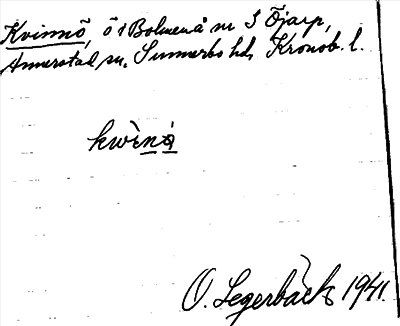 Kvinnö, ö i Bolmenå nr S Öjarp,
Annerstad sn. Sunnerbo hd, Kronob. l.
kwènȧ
O. Legerbäck 1941.